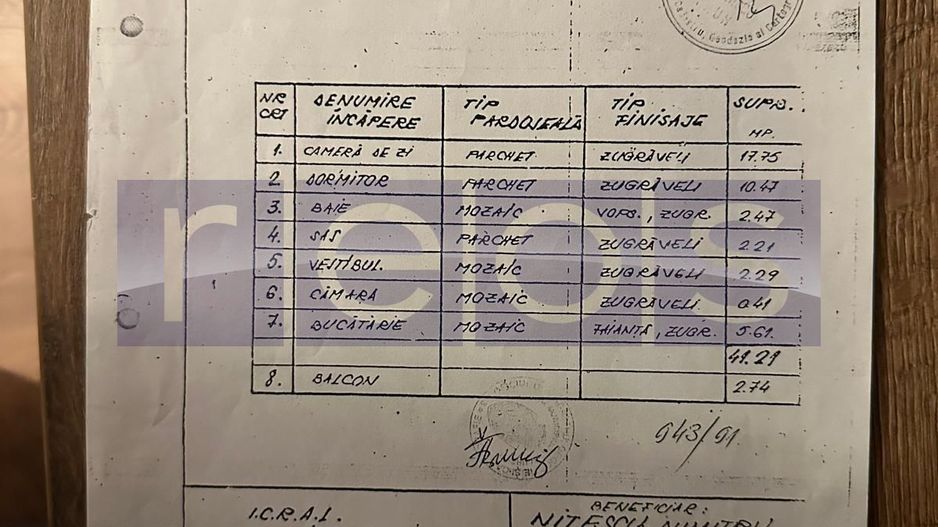 NR CRT DENUMIRE ÎNCĂPERE TIP PARDOSEALĂ TIP FINISAJE SUPR. MP.
1. CAMERĂ DE ZI PARCHET ZUGRĂVELI 17.75
2 DORMITOR PARCHET ZUGRĂVELI 10.47
3. BAIE MOZAIC VOPS., ZUGR. 2.47
4. SAS PARCHET ZUGRĂVELI 2.21
5. VESTIBUL. MOZAIC ZUGRĂVELI 2.29
6. CĂMARĂ MOZAIC ZUGRĂVELI 0.41
7. BUCĂTĂRIE MOZAIC FAIANȚĂ, ZUGR. 5.61
41.21
8. BALCON 2.74
943/91
I.C.R.A.L.
BENEFICIAR:
NIȚESCU DUMITRU
reos